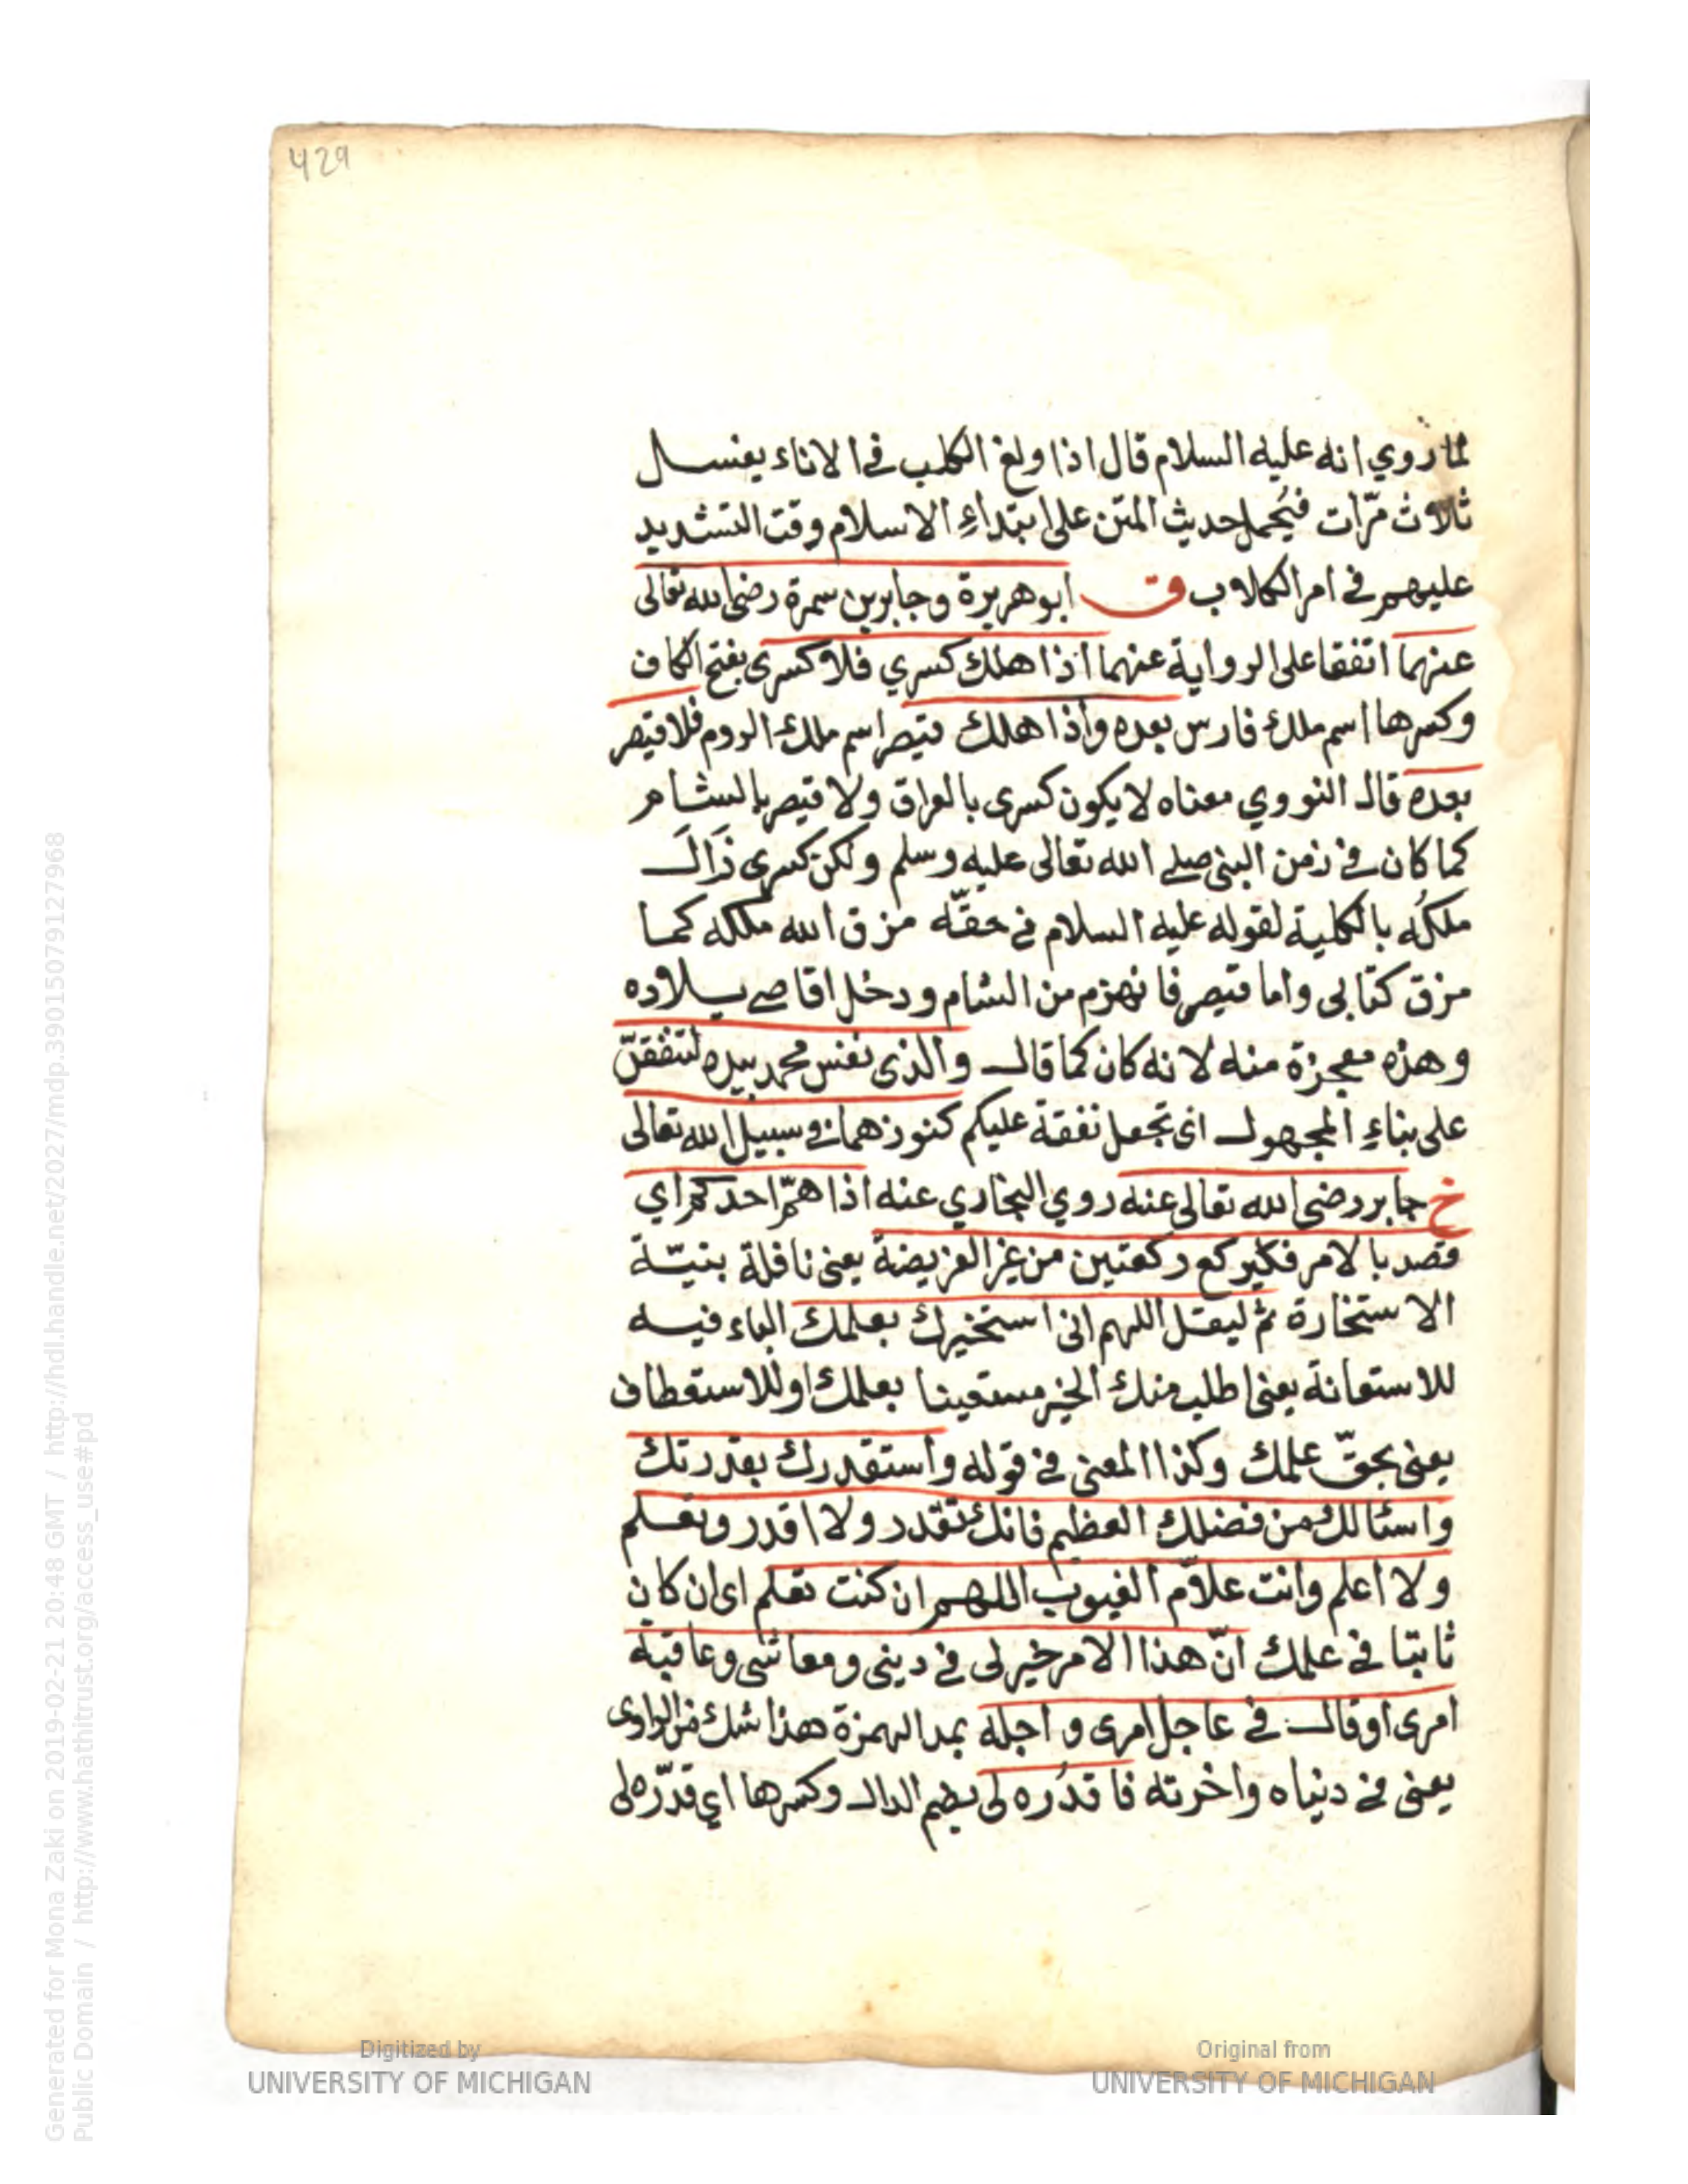 429
لما روي انه عليه السلام قال اذا ولغ الكلب في الاناء يغسل
ثلاث مرّات فيُحمل حديث المتن على ابتداءِ الاسلام وقت التشديد
عليهم في امر الكلاب ق ابو هريرة وجابر بن سمرة رضي الله تعالى
عنهما اتفقا على الرواية عنهما اذا هلك كسري فلا كسرى بفتح الكاف
وكسرها اسم ملك فارس بعده واذا هلك قيصر اسم ملك الروم فلا قيصر
بعده قال النووي معناه لا يكون كسرى بالعراق ولا قيصر بالشام
كما كان في زمن النبي صلى الله تعالى عليه وسلم ولكن كسرى زَالَ
ملكُه بالكلية لقوله عليه السلام في حقّه مزق الله ملكه كما
مزق كتابى واما قيصر فانهزم من الشام ودخل اقاصى بلاده
وهذه معجزة منه لانه كان كما قال والذى نفس محمد بيده لتنفقنّ
على بناءِ المجهول اى تجعل نفقة عليكم كنوزهما في سبيل الله تعالى
خ جابر رضي الله تعالى عنه روي البخاري عنه اذا همّ احدكم اي
قصد بالامر فليركع ركعتين من غير الفريضة يعنى نافلة بنيّة
الاستخارة ثم ليقل اللهم انى استخيرك بعلمك الباء فيه
للاستعانة يعنى اطلب منك الخير مستعينا بعلمك او للاستعطاف
يعنى بحقّ علمك وكذا المعنى في قوله واستقدرك بقدرتك
واسئالك من فضلك العظيم فانك تقدر ولا اقدر وتعلم
ولا اعلم وانت علاّم الغيوب اللهم ان كنت تعلم اى ان كان
ثابتا في علمك انّ هذا الامر خير لى في دينى ومعاشى وعاقبة
امرى او قال في عاجل امرى واجله بمد الهمزة هذا شك من الراوى
يعنى في دنياه واخرته فاقدُره لى بضم الدال وكسرها اي قدّره لى
Digitized by
UNIVERSITY OF MICHIGAN
Original from
UNIVERSITY OF MICHIGAN
Generated for Mona Zaki on 2019-02-21 20:48 GMT / http://hdl.handle.net/2027/mdp.39015079127968
Public Domain / http://www.hathitrust.org/access_use#pd